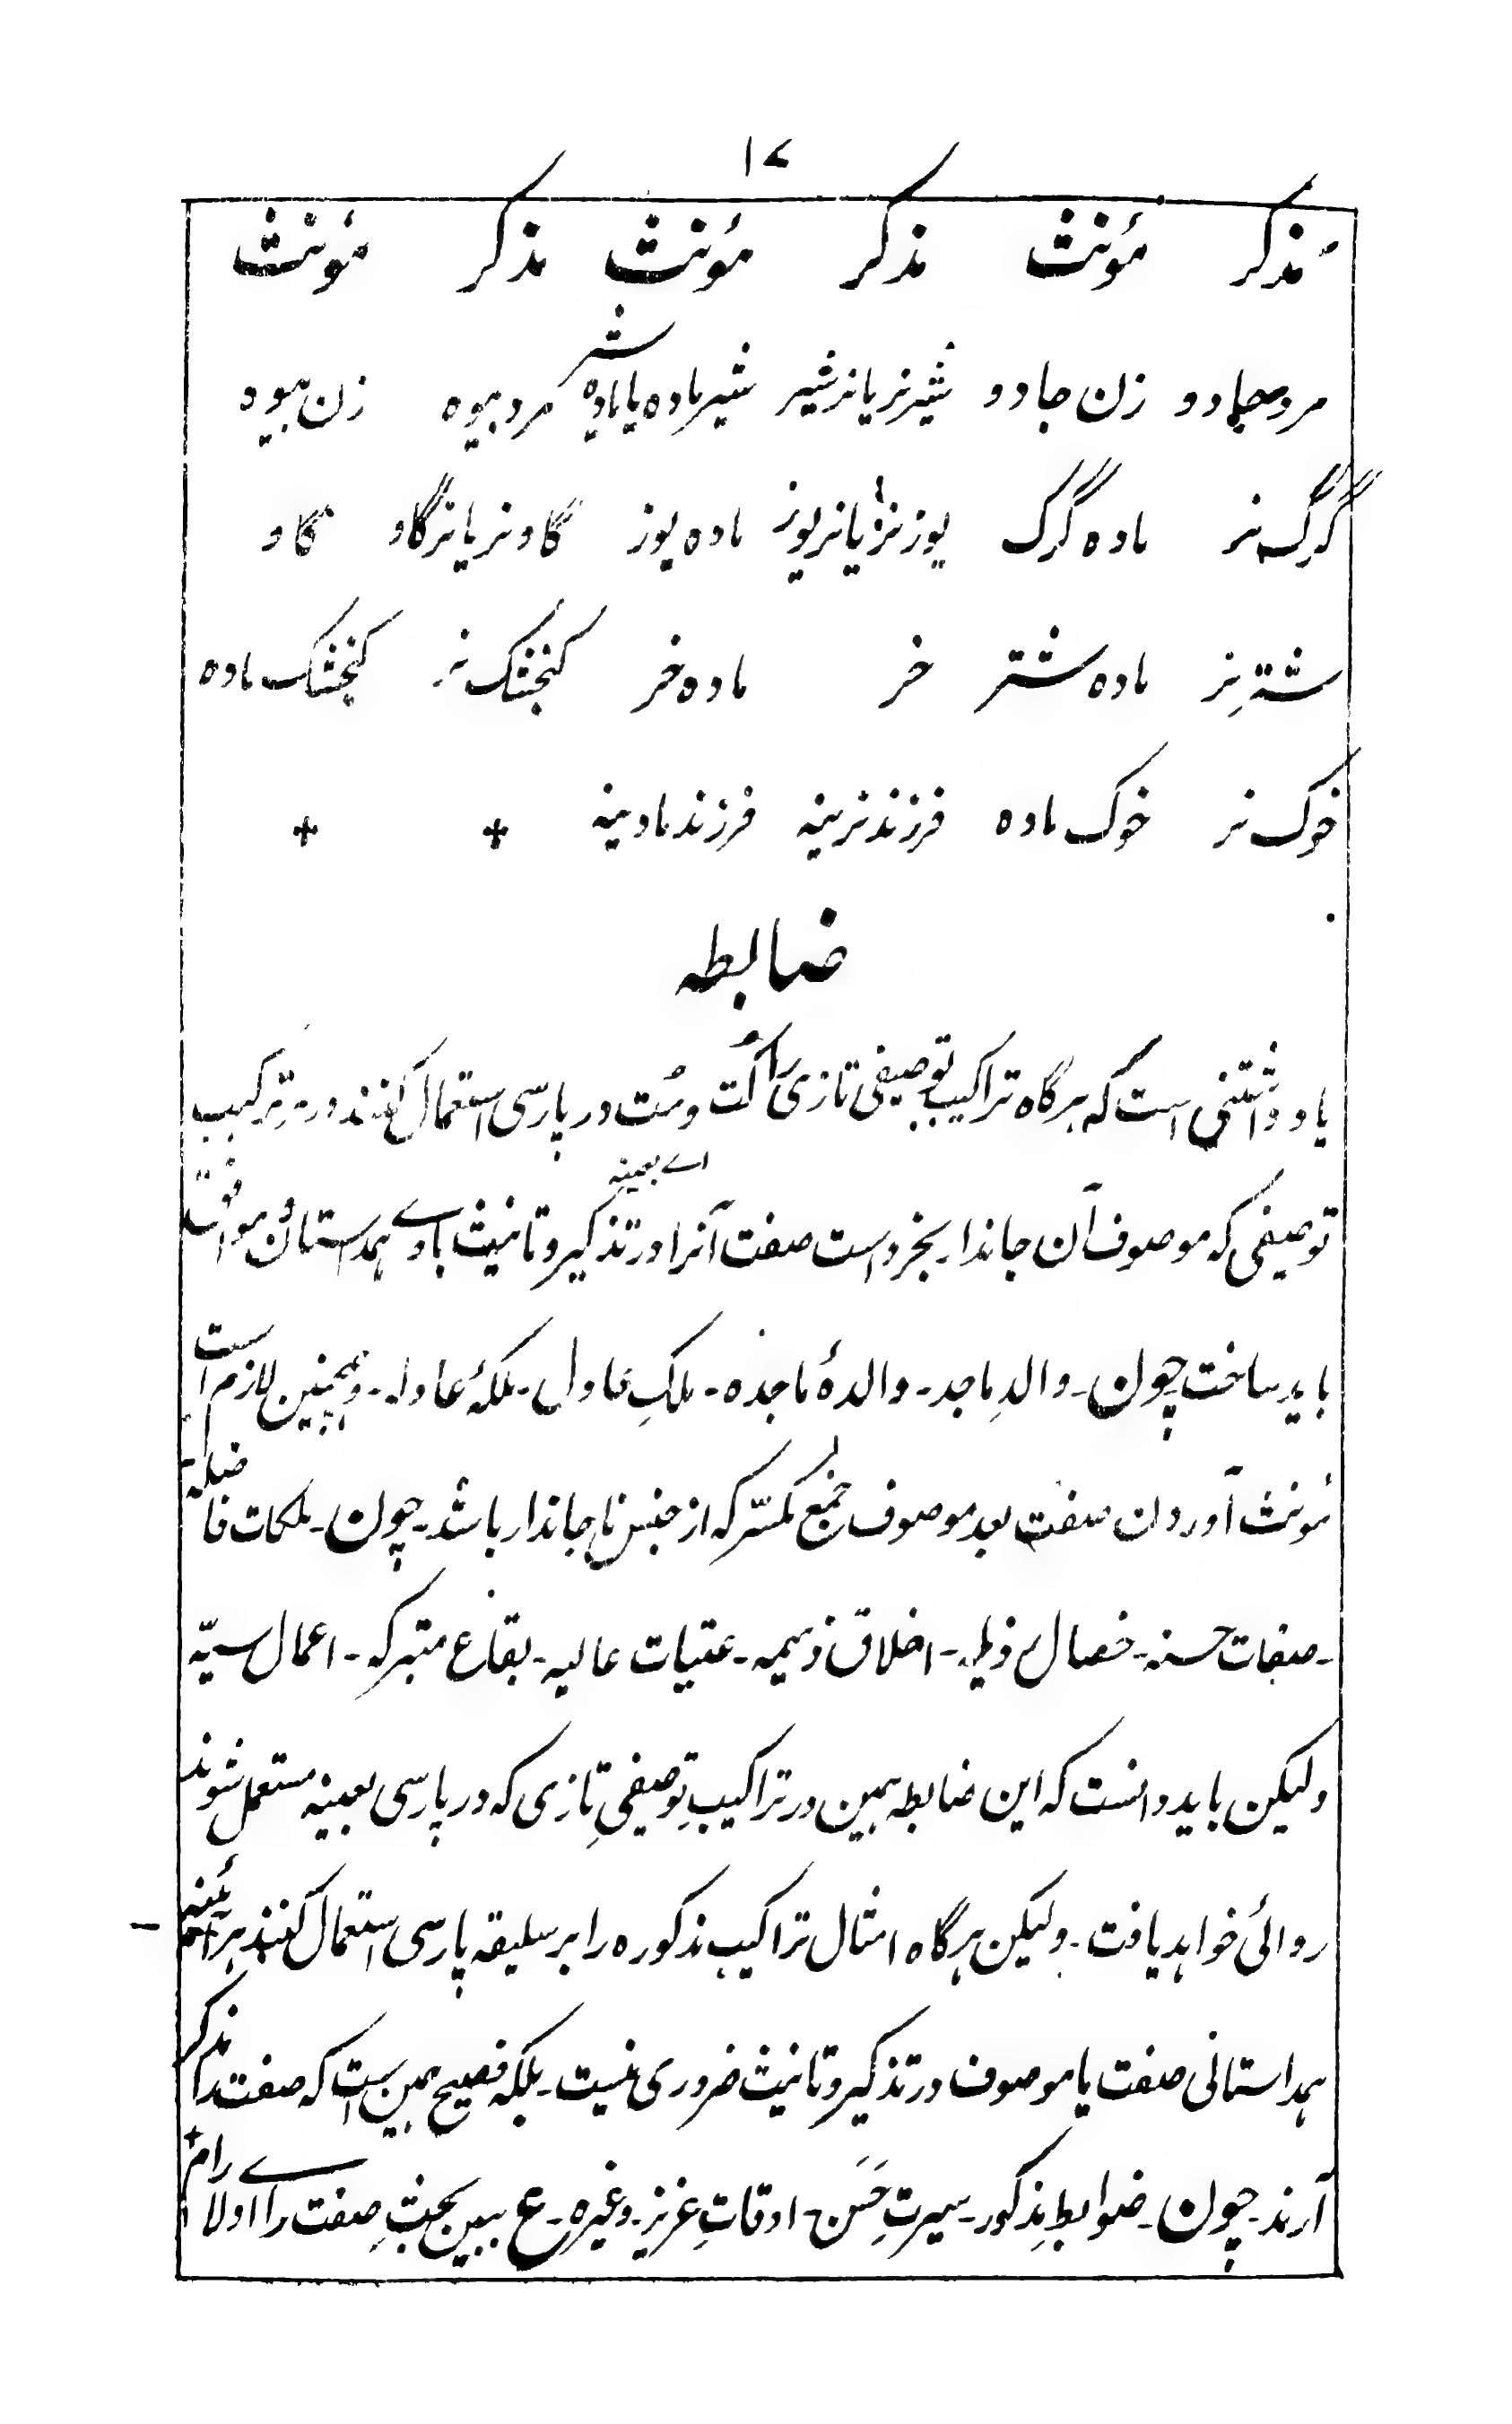 ۱۷
مذکر مؤنث مذکر مؤنث مذکر مؤنث
مرد جادو زن جادو شیر نر یا نر شیر شیر ماده یا ماده شیر مرد بیوه زن بیوه
گرگ نر ماده گرگ یوز نر یا نر یوز ماده یوز گاو نر یا نر گاو گاو
شتر نر ماده شتر خر ماده خر کنجشک نر کنجشک ماده
خوک نر خوک ماده فرزند نرینه فرزند مادینه + +
ضابطه
یاد داشتنی است که هرگاه تراکیب توصیفی تازی را کُت و مُت در پارسی استعمال کنند در ترکیب
اے بعینه
توصیفی که موصوف آن جاندار بخرد است صفت آنرا در تذکیر و تانیث باوے همداستان و موافق
باید ساخت چون ـ والدِ ماجد ـ والدهٔ ماجده ـ ملکِ عادل ـ ملکهٔ عادله ـ و همچنین لازم است
مؤنث آوردن صفت بعد موصوف جمع مکسّر که از جنس ناجاندار باشد ـ چون ـ ملکات فاضله
ـ صفات حسنه ـ خصال رذیله ـ اخلاق ذمیمه ـ عتبات عالیه ـ بقاع متبرکه ـ اعمال سیّه
ولیکن باید دانست که این ضابطه همین در تراکیبِ توصیفیِ تازی که در پارسی بعینه مستعمل شوند
روائی خواهد یافت ـ ولیکن هرگاه امثال تراکیب مذکوره را بر سلیقه پارسی استعمال کنند هر آئینه
همداستانی صفت یا موصوف در تذکیر و تانیث ضروری نیست ـ بلکه فصیح همین است که صفت را مذکر
آرند ـ چون ـ ضوابطِ مذکور ـ سیرتِ حَسَن ـ اوقاتِ عزیز ـ وغیره ـ ع ببین بحثِ صفت را اولاے رام